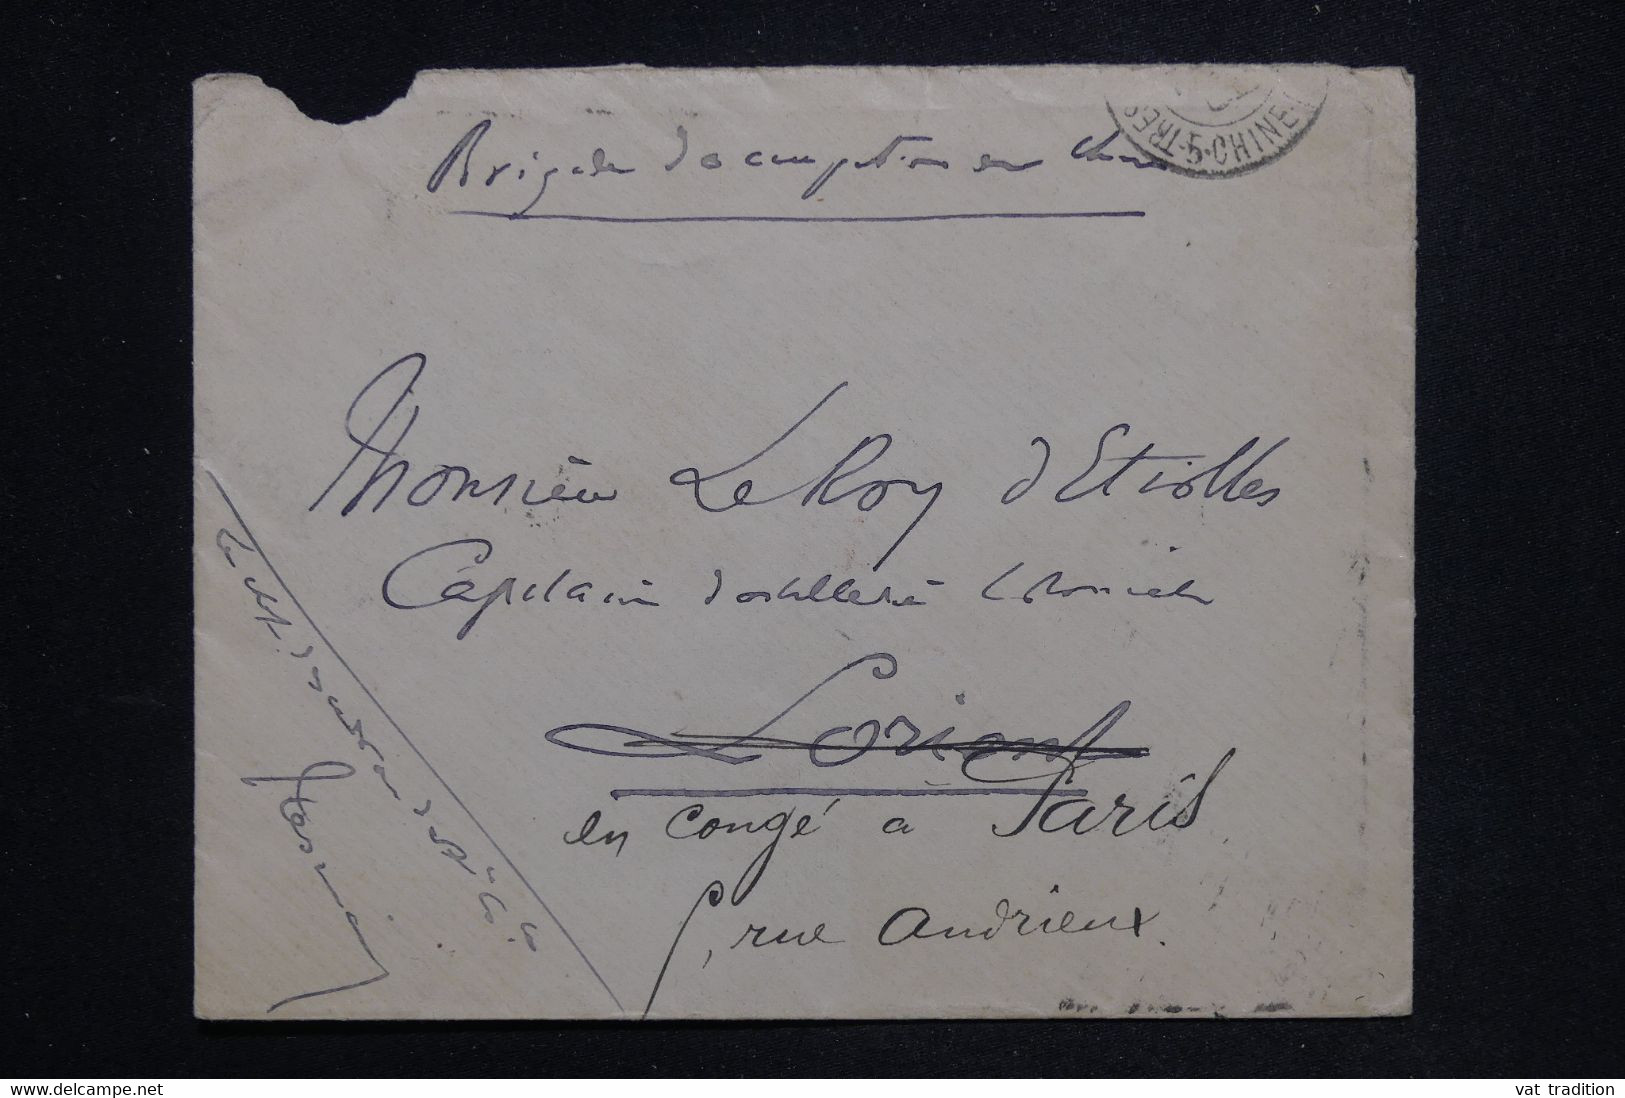 Brigade d'occupation en Chine
TRES 5 CHINE
Monsieur Le Roy d'Etiolles
Capitaine d'artillerie Coloniale
Lorient
en congé à Paris
rue Andrieux.
delcampe.net
vat tradition